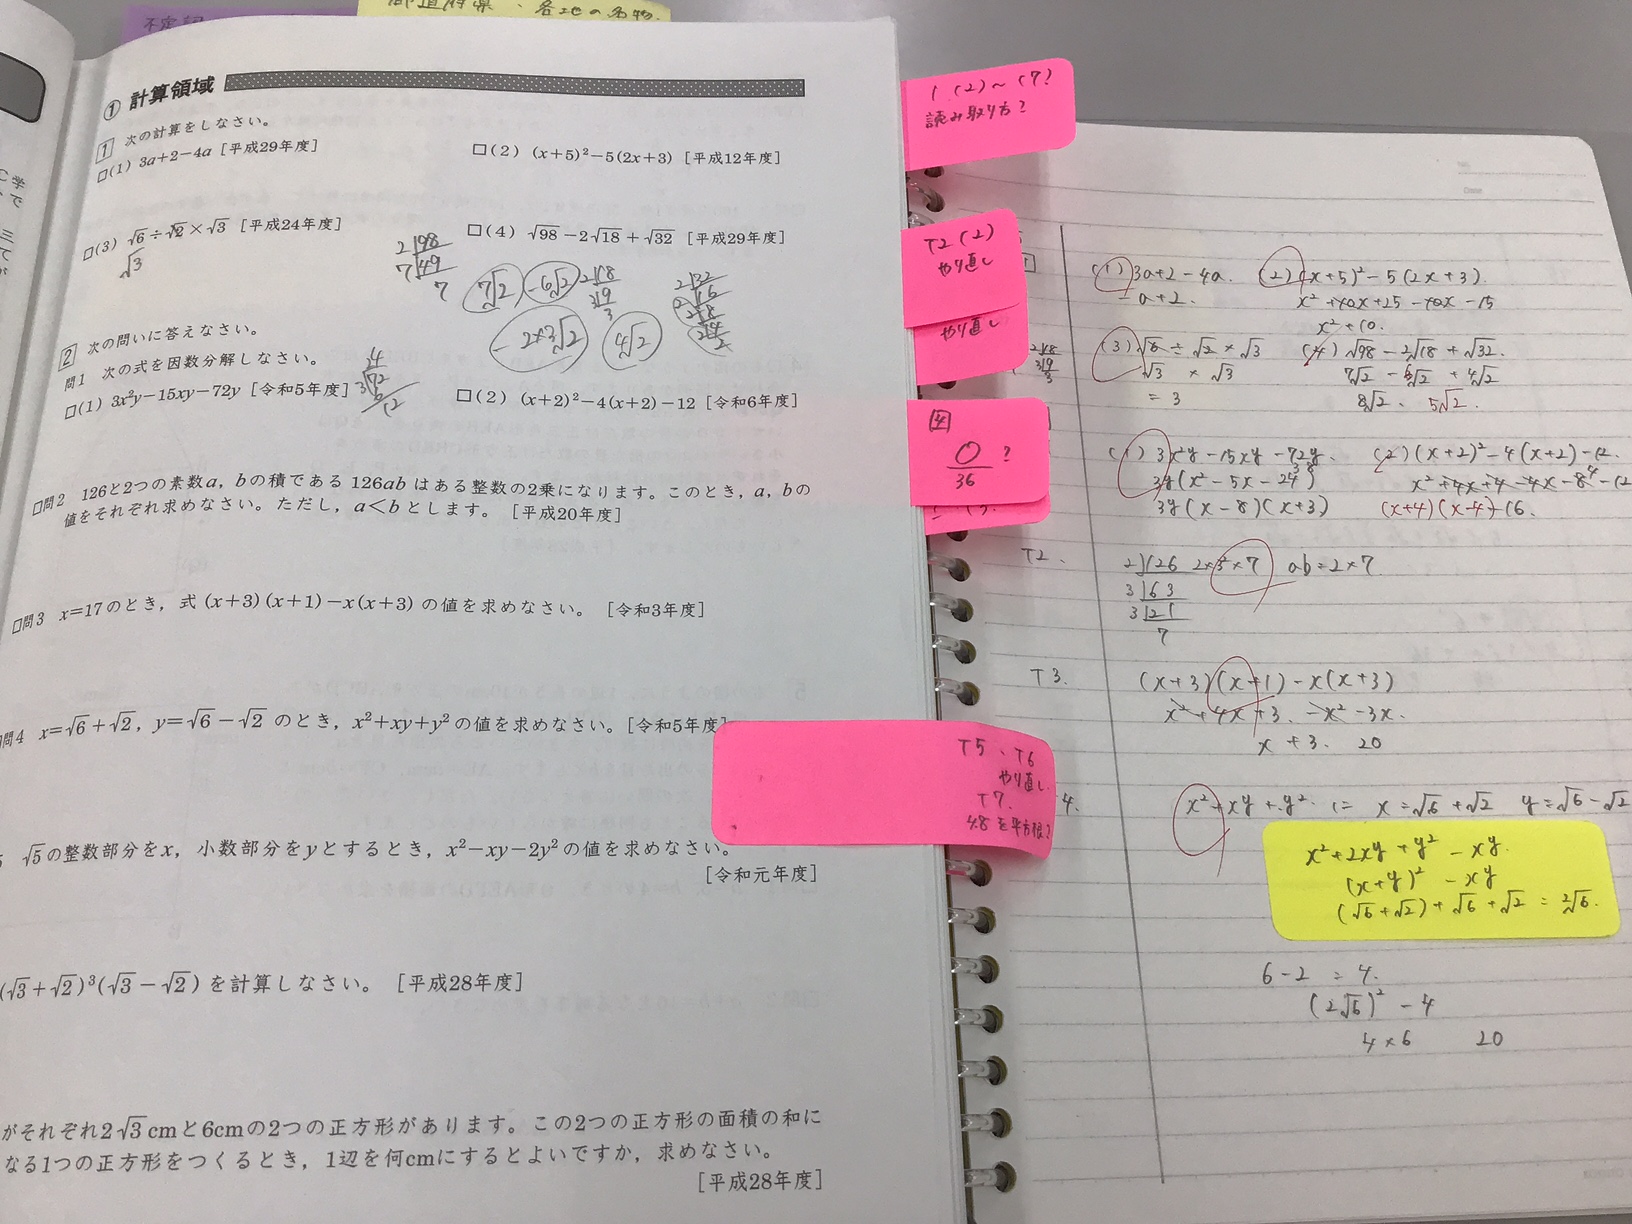 都道府県、各地の名物.
① 計算領域
1 次の計算をしなさい。
□(1) 3a+2−4a [平成29年度]
□(2) (x+5)²−5(2x+3) [平成12年度]
□(3) √6÷√2×√3 [平成24年度]
√3
□(4) √98−2√18+√32 [平成29年度]
2 98
7 49
7
7√2
-6√2
-2×3√2
4√2
2 次の問いに答えなさい。
問1 次の式を因数分解しなさい。
□(1) 3x²y−15xy−72y [令和5年度]
□(2) (x+2)²−4(x+2)−12 [令和6年度]
□問2 126と2つの素数a, bの積である126abはある整数の2乗になります。このとき, a, bの
値をそれぞれ求めなさい。ただし, a<bとします。 [平成20年度]
□問3 x=17のとき, 式 (x+3)(x+1)−x(x+3) の値を求めなさい。 [令和3年度]
問4 x=√6+√2, y=√6−√2 のとき, x²+xy+y²の値を求めなさい。[令和5年度]
√5の整数部分をx, 小数部分をyとするとき, x²−xy−2y²の値を求めなさい。
[令和元年度]
(√3+√2)³(√3−√2) を計算しなさい。 [平成28年度]
がそれぞれ2√3cmと6cmの2つの正方形があります。この2つの正方形の面積の和に
なる1つの正方形をつくるとき, 1辺を何cmにするとよいですか, 求めなさい。
[平成28年度]
1 (2)〜(7)
読み取り方?
T2 (2)
やり直し
やり直し
4
0/36 ?
T5、T6
やり直し.
T7.
48を平方根?
(1) 3a+2-4a.
-a+2.
(2) (x+5)²-5(2x+3).
x²+10x+25-10x-15
x²+10.
(3) √6÷√2×√3
√3 × √3
= 3
(4) √98-2√18+√32.
7√2-6√2+4√2
8√2. 5√2.
(1) 3x²y-15xy-72y.
3y(x²-5x-24)
3y(x-8)(x+3)
(2) (x+2)²-4(x+2)-12.
x²+4x+4-4x-8-12
(x+4)(x-4)-16.
T2.
2 126 2×3²×7 ab=2×7
3 63
3 21
7
T3.
(x+3)(x+1)-x(x+3)
x²+4x+3.-x²-3x.
x+3. 20
4.
x²+xy+y² x=√6+√2 y=√6-√2
x²+2xy+y²-xy.
(x+y)²-xy
(√6+√2)+√6+√2=2√6.
6-2=4.
(2√6)²-4
4×6 20